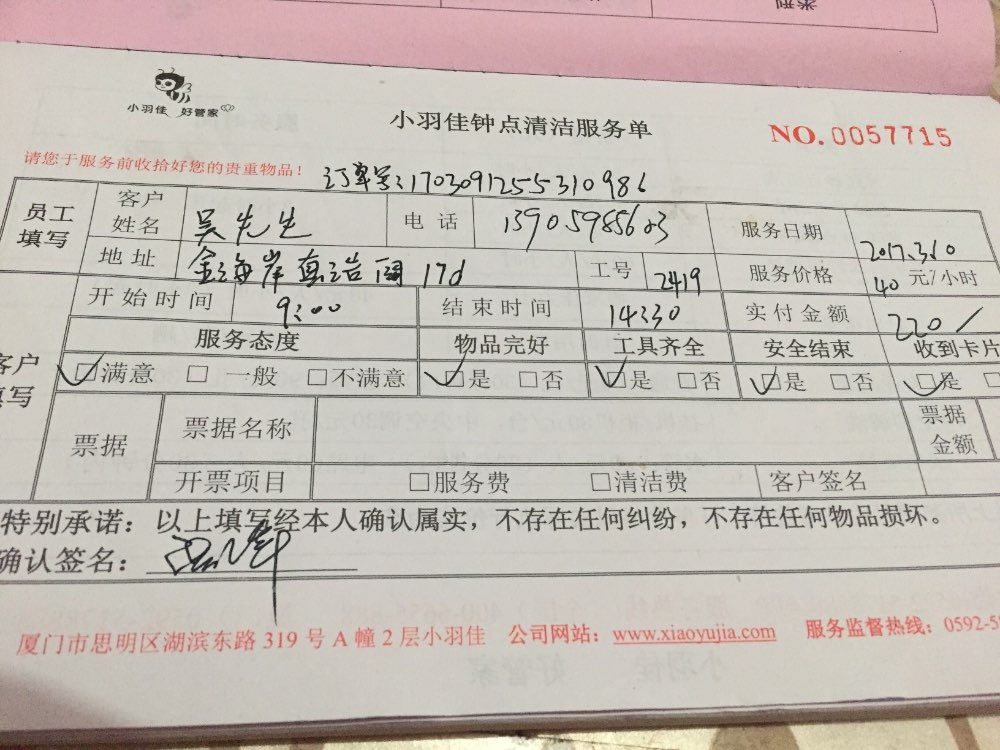 类型
小羽佳 好管家
小羽佳钟点清洁服务单
NO. 0057715
请您于服务前收拾好您的贵重物品!
订单号:1703091255310986
员工填写 客户姓名 吴先生 电话 13905985603 服务日期 2017.3.10
地址 金海岸 17d 工号 2419 服务价格 40 元/小时
开始时间 9:00 结束时间 14:30 实付金额 220/
服务态度 物品完好 工具齐全 安全结束 收到卡片
客户填写 ☑满意 □一般 □不满意 ☑是 □否 ☑是 □否 ☑是 □否 ☑是 □
票据 票据名称 票据金额
开票项目 □服务费 □清洁费 客户签名
特别承诺:以上填写经本人确认属实,不存在任何纠纷,不存在任何物品损坏。
确认签名:
厦门市思明区湖滨东路 319 号 A 幢 2 层小羽佳 公司网站:www.xiaoyujia.com 服务监督热线:0592-5